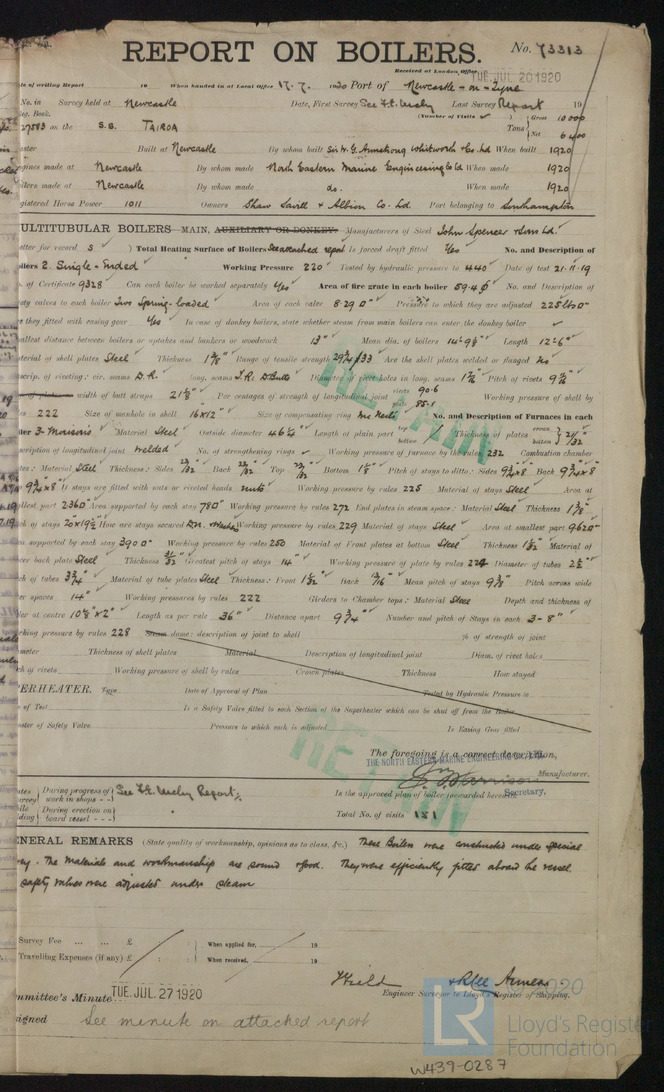 REPORT ON BOILERS.
No. 73313
Received at London Office TUE. JUL 20 1920
te of writing Report 19 When handed in at Local Office 17.7. 1920 Port of Newcastle-on-Tyne
No. in Survey held at Newcastle Date, First Survey Last Survey Report 19
eg. Book. (Number of Visits )
27583 on the S.S. TAIROA Tons Gross 10000 Net 6400
aster Built at Newcastle By whom built Sir W.G. Armstrong Whitworth & Co. Ld When built 1920
gines made at Newcastle By whom made North Eastern Marine Engineering Co Ld When made 1920
ilers made at Newcastle By whom made do. When made 1920
gistered Horse Power 1011 Owners Shaw Savill & Albion Co. Ld. Port belonging to Southampton
ULTITUBULAR BOILERS MAIN, AUXILIARY OR DONKEY. Manufacturers of Steel John Spencer & Sons Ld.
etter for record S ) Total Heating Surface of Boilers See attached report Is forced draft fitted Yes No. and Description of
oilers 2. Single-Ended Working Pressure 220 Tested by hydraulic pressure to 440 Date of test 21.11.19
. of Certificate 9328 Can each boiler be worked separately Yes Area of fire grate in each boiler No. and Description of
ety valves to each boiler Two Spring-loaded Area of each valve 8.29 Pressure to which they are adjusted 225 lbs
re they fitted with easing gear Yes In case of donkey boilers, state whether steam from main boilers can enter the donkey boiler
allest distance between boilers or uptakes and bunkers or woodwork 13" Mean dia. of boilers Length 12'-6"
aterial of shell plates Steel Thickness Range of tensile strength Are the shell plates welded or flanged No
scrip. of riveting: cir. seams D.R. long. seams T.R. D.Butts Diameter of rivet holes in long. seams Pitch of rivets
width of butt straps Per centages of strength of longitudinal joint rivets 90.6 plate 85.1 Working pressure of shell by
s 222 Size of manhole in shell 16x12" Size of compensating ring No. and Description of Furnaces in each
iler 3-Morison's Material Steel Outside diameter Length of plain part top bottom Thickness of plates crown bottom
cription of longitudinal joint Welded No. of strengthening rings Working pressure of furnace by the rules 232 Combustion chamber
tes: Material Steel Thickness: Sides Back Top Bottom Pitch of stays to ditto: Sides Back
If stays are fitted with nuts or riveted heads nuts Working pressure by rules 225 Material of stays Steel Area at
allest part Area supported by each stay 780 Working pressure by rules 272 End plates in steam space: Material Steel Thickness
ch of stays How are stays secured Working pressure by rules 229 Material of stays Steel Area at smallest part
ea supported by each stay Working pressure by rules 250 Material of Front plates at bottom Steel Thickness Material of
wer back plate Steel Thickness Greatest pitch of stays 14" Working pressure of plate by rules Diameter of tubes
ch of tubes Material of tube plates Steel Thickness: Front Back Mean pitch of stays Pitch across wide
ter spaces 14" Working pressures by rules 222 Girders to Chamber tops: Material Steel Depth and thickness of
der at centre Length as per rule 36" Distance apart Number and pitch of Stays in each 3-8"
orking pressure by rules 228 Steam dome: description of joint to shell % of strength of joint
ameter Thickness of shell plates Material Description of longitudinal joint Diam. of rivet holes
ch of rivets Working pressure of shell by rules Crown plates Thickness How stayed
PERHEATER. Type Date of Approval of Plan Tested by Hydraulic Pressure to
te of Test Is a Safety Valve fitted to each Section of the Superheater which can be shut off from the Boiler
ameter of Safety Valve Pressure to which each is adjusted Is Easing Gear fitted
RETAIN
RETAIN
The foregoing is a correct description,
THE NORTH EASTERN MARINE ENGINEERING CO. LTD.
Manufacturer.
Secretary.
During progress of work in shops - -
During erection on board vessel - - -
Is the approved plan of boiler forwarded herewith
Total No. of visits 151
ENERAL REMARKS (State quality of workmanship, opinions as to class, &c.) These Boilers were constructed under special
vey. The materials and workmanship are sound & good. They were efficiently fitted aboard the vessel
safety valves were adjusted under steam
Survey Fee ... ... £ : : When applied for, 19
Travelling Expenses (if any) £ : : When received, 19
Engineer Surveyor to Lloyd's Register of Shipping.
ommittee's Minute TUE. JUL 27 1920
signed See minute on attached report
© 2020
LR
Lloyd's Register
Foundation
W439-0287